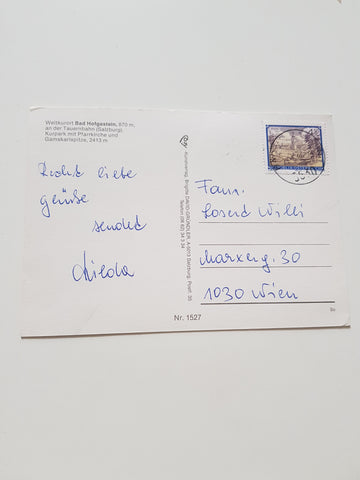 Weltkurort Bad Hofgastein, 870 m,
an der Tauernbahn (Salzburg),
Kurpark mit Pfarrkirche und
Gamskarlspitze, 2413 m
Recht liebe
grüße
sendet
Hilda
Kunstverlag Brigitte DAVID-GRÜNDLER, A-5013 Salzburg, Postf. 30
Telefon (06 62) 34 3 34
Fam.
Losert Willi
Marxerg. 30
1030 Wien
Nr. 1527